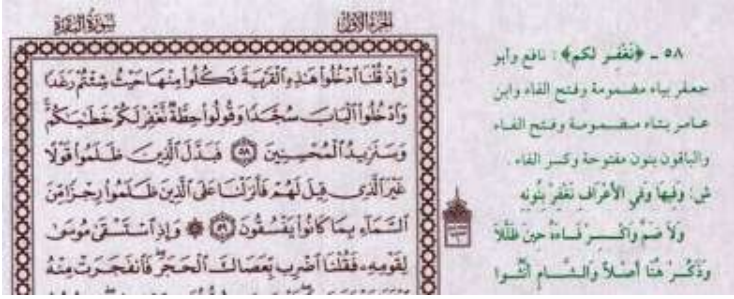 الجزء الأول
سورة البقرة
وَإِذْ قُلْنَا ٱدْخُلُوا۟ هَـٰذِهِ ٱلْقَرْيَةَ فَكُلُوا۟ مِنْهَا حَيْثُ شِئْتُمْ رَغَدًا
وَٱدْخُلُوا۟ ٱلْبَابَ سُجَّدًا وَقُولُوا۟ حِطَّةٌ نَّغْفِرْ لَكُمْ خَطَـٰيَـٰكُمْ
وَسَنَزِيدُ ٱلْمُحْسِنِينَ ۝٥٨ فَبَدَّلَ ٱلَّذِينَ ظَلَمُوا۟ قَوْلًا
غَيْرَ ٱلَّذِى قِيلَ لَهُمْ فَأَنزَلْنَا عَلَى ٱلَّذِينَ ظَلَمُوا۟ رِجْزًا مِّنَ
ٱلسَّمَآءِ بِمَا كَانُوا۟ يَفْسُقُونَ ۝٥٩ ۞ وَإِذِ ٱسْتَسْقَىٰ مُوسَىٰ
لِقَوْمِهِۦ فَقُلْنَا ٱضْرِب بِّعَصَاكَ ٱلْحَجَرَ فَٱنفَجَرَتْ مِنْهُ
٥٨ ـ ﴿نَغْفِر لكم﴾ : نافع وأبو
جعفر بياء مضمومة وفتح الفاء وابن
عامر بتاء مضمومة وفتح الفاء
والباقون بنون مفتوحة وكسر الفاء .
ش: وفيها وفي الأَعْرَاف نَغْفِرْ بِنُونِه
وَلاَ ضَمَّ وَاكْسِرْ فَاءَهُ حِينَ ظَلَّلاَ
وَذَكِّرْ هُنَا أَصْلاً وَالشَّامِ أَنَّثُوا